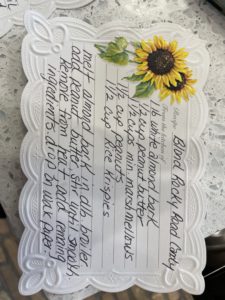 Recipe Blond Rocky Road Candy
From the kitchen of
1 lb white almond bark
1/2 cup peanut butter
1 1/2 cups mini marshmellows
1/2 cup peanuts
1 1/2 cup Rice Krispies
melt almond bark in dbl broiler,
add peanut butter, stir until smooth.
Remove from heat add remaining
ingredients drop on wax paper.